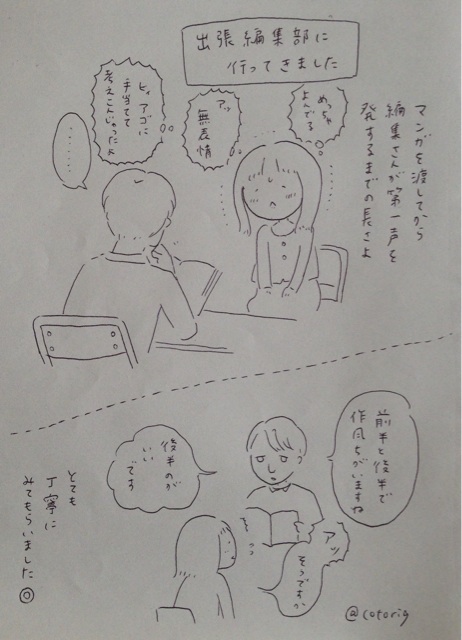 出張編集部に
行ってきました
マンガを渡してから
編集さんが第一声を
発するまでの長さよ
めっちゃ
よんでる
アッ
無表情
ヒィ アゴに
手当てて
考えこんじゃったよ
………
前半と後半で
作風ちがいますね
後半のが
いい
です
アッ
そうですか
とても
丁寧に
みてもらいました◎
@cotorig